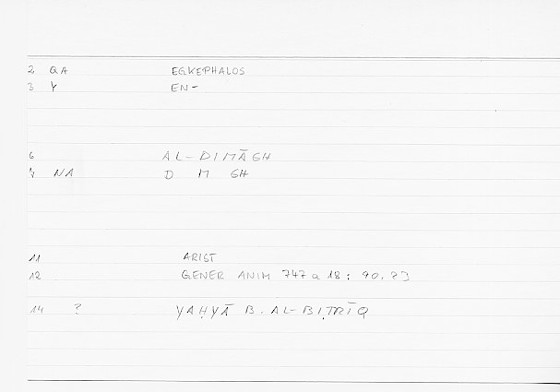 2 QA EGKEPHALOS
3 Y EN-
6 AL-DIMĀGH
NA D M GH
11 ARIST
12 GENER ANIM 747a 18: 90.
14 ? YAḤYĀ B. AL-BIṬRĪQ